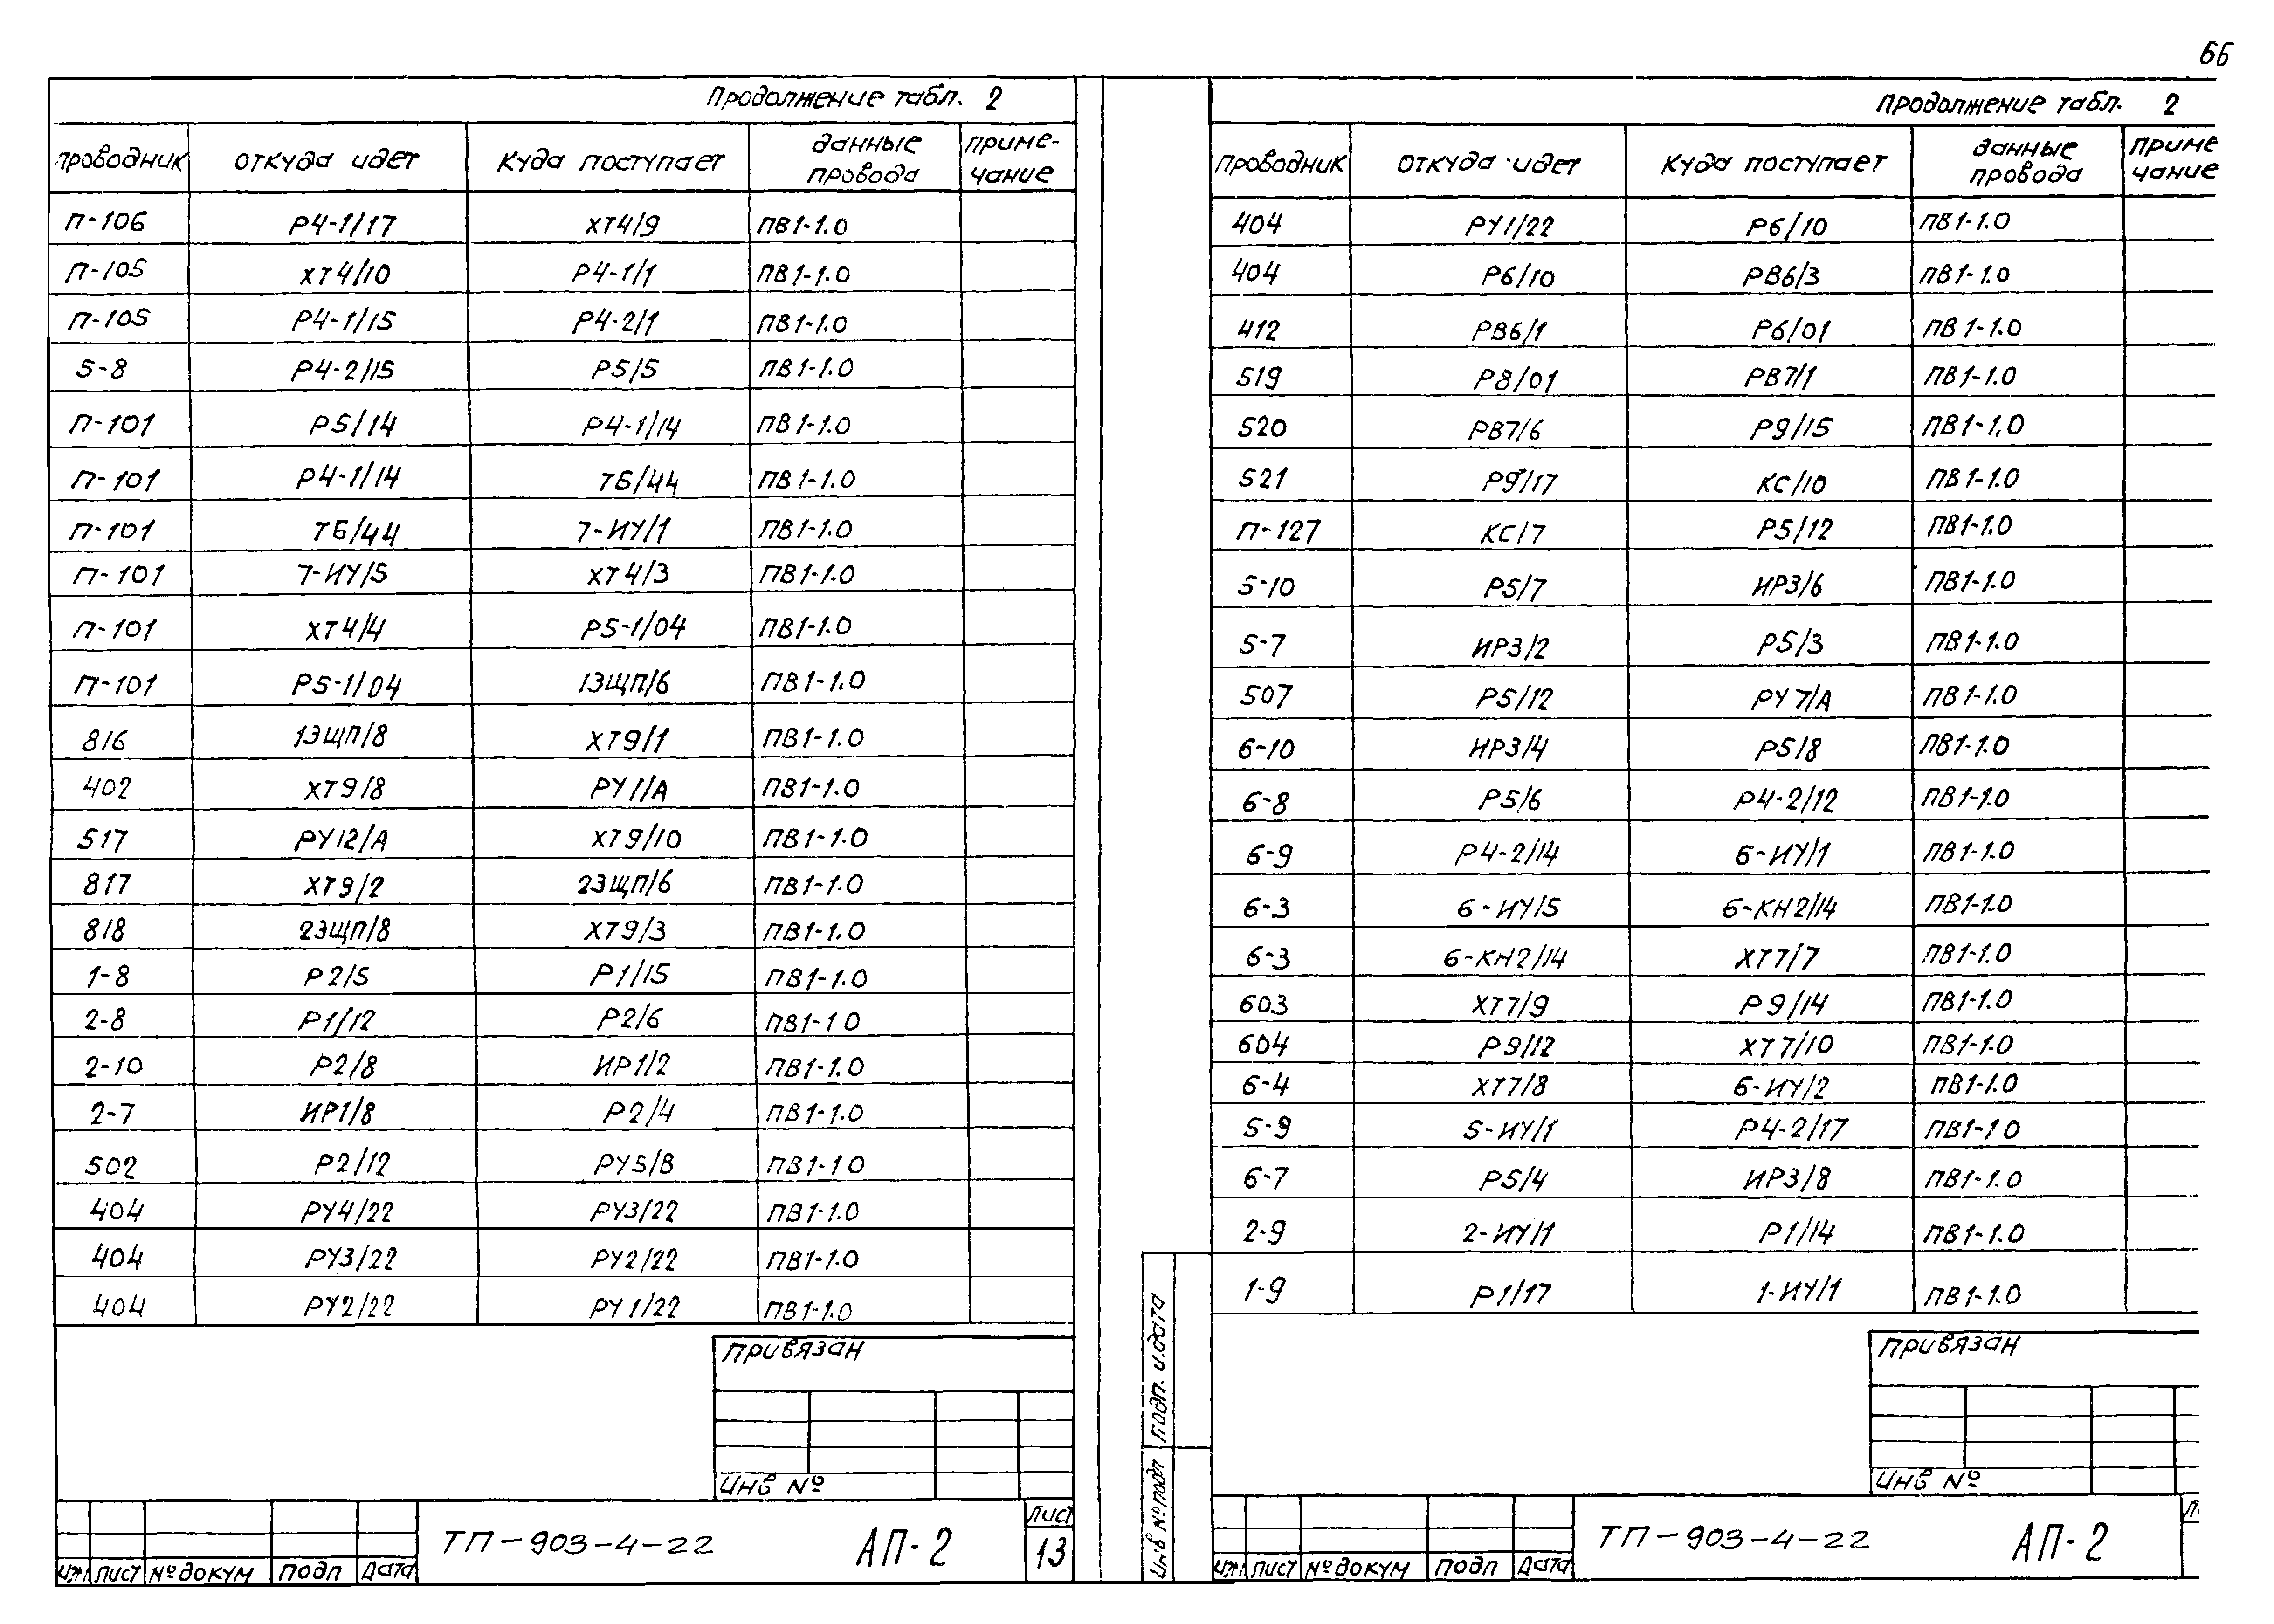 66
Продолжение табл. 2
Проводник откуда идет куда поступает данные провода приме-чание
П-106 Р4-1/17 ХТ4/9 ПВ1-1.0
П-105 ХТ4/10 Р4-1/1 ПВ1-1.0
П-105 Р4-1/15 Р4-2/1 ПВ1-1.0
5-8 Р4-2/15 Р5/5 ПВ1-1.0
П-101 Р5/14 Р4-1/14 ПВ1-1.0
П-101 Р4-1/14 ТБ/44 ПВ1-1.0
П-101 ТБ/44 7-ИУ/1 ПВ1-1.0
П-101 7-ИУ/5 ХТ4/3 ПВ1-1.0
П-101 ХТ4/4 Р5-1/04 ПВ1-1.0
П-101 Р5-1/04 1ЭЩП/6 ПВ1-1.0
816 1ЭЩП/8 ХТ9/1 ПВ1-1.0
402 ХТ9/8 РУ1/А ПВ1-1.0
517 РУ12/А ХТ9/10 ПВ1-1.0
817 ХТ9/2 2ЭЩП/6 ПВ1-1.0
818 2ЭЩП/8 ХТ9/3 ПВ1-1.0
1-8 Р2/5 Р1/15 ПВ1-1.0
2-8 Р1/12 Р2/6 ПВ1-1 0
2-10 Р2/8 ИР1/2 ПВ1-1.0
2-7 ИР1/8 Р2/4 ПВ1-1.0
502 Р2/12 РУ5/В ПВ1-1 0
404 РУ4/22 РУ3/22 ПВ1-1.0
404 РУ3/22 РУ2/22 ПВ1-1.0
404 РУ2/22 РУ1/22 ПВ1-1.0
Привязан
Инв №
Изм лист № докум подп Дата
ТП-903-4-22 АП-2
лист
13
Продолжение табл. 2
Проводник откуда идет куда поступает данные провода приме чание
404 РУ1/22 Р6/10 ПВ1-1.0
404 Р6/10 РВ6/3 ПВ1-1.0
412 РВ6/1 Р6/01 ПВ1-1.0
519 Р8/01 РВ7/1 ПВ1-1.0
520 РВ7/6 Р9/15 ПВ1-1.0
521 Р9/17 КС/10 ПВ1-1.0
П-127 КС/7 Р5/12 ПВ1-1.0
5-10 Р5/7 ИР3/6 ПВ1-1.0
5-7 ИР3/2 Р5/3 ПВ1-1.0
507 Р5/12 РУ7/А ПВ1-1.0
6-10 ИР3/4 Р5/8 ПВ1-1.0
6-8 Р5/6 Р4-2/12 ПВ1-1.0
6-9 Р4-2/14 6-ИУ/1 ПВ1-1.0
6-3 6-ИУ/5 6-КН2/14 ПВ1-1.0
6-3 6-КН2/14 ХТ7/7 ПВ1-1.0
603 ХТ7/9 Р9/14 ПВ1-1.0
604 Р9/12 ХТ7/10 ПВ1-1.0
6-4 ХТ7/8 6-ИУ/2 ПВ1-1.0
5-9 5-ИУ/1 Р4-2/17 ПВ1-1 0
6-7 Р5/4 ИР3/8 ПВ1-1.0
2-9 2-ИУ/1 Р1/14 ПВ1-1.0
1-9 Р1/17 1-ИУ/1 ПВ1-1.0
Подп. и дата
Инв № подп
Привязан
Инв №
Изм лист № докум подп Дата
ТП-903-4-22 АП-2